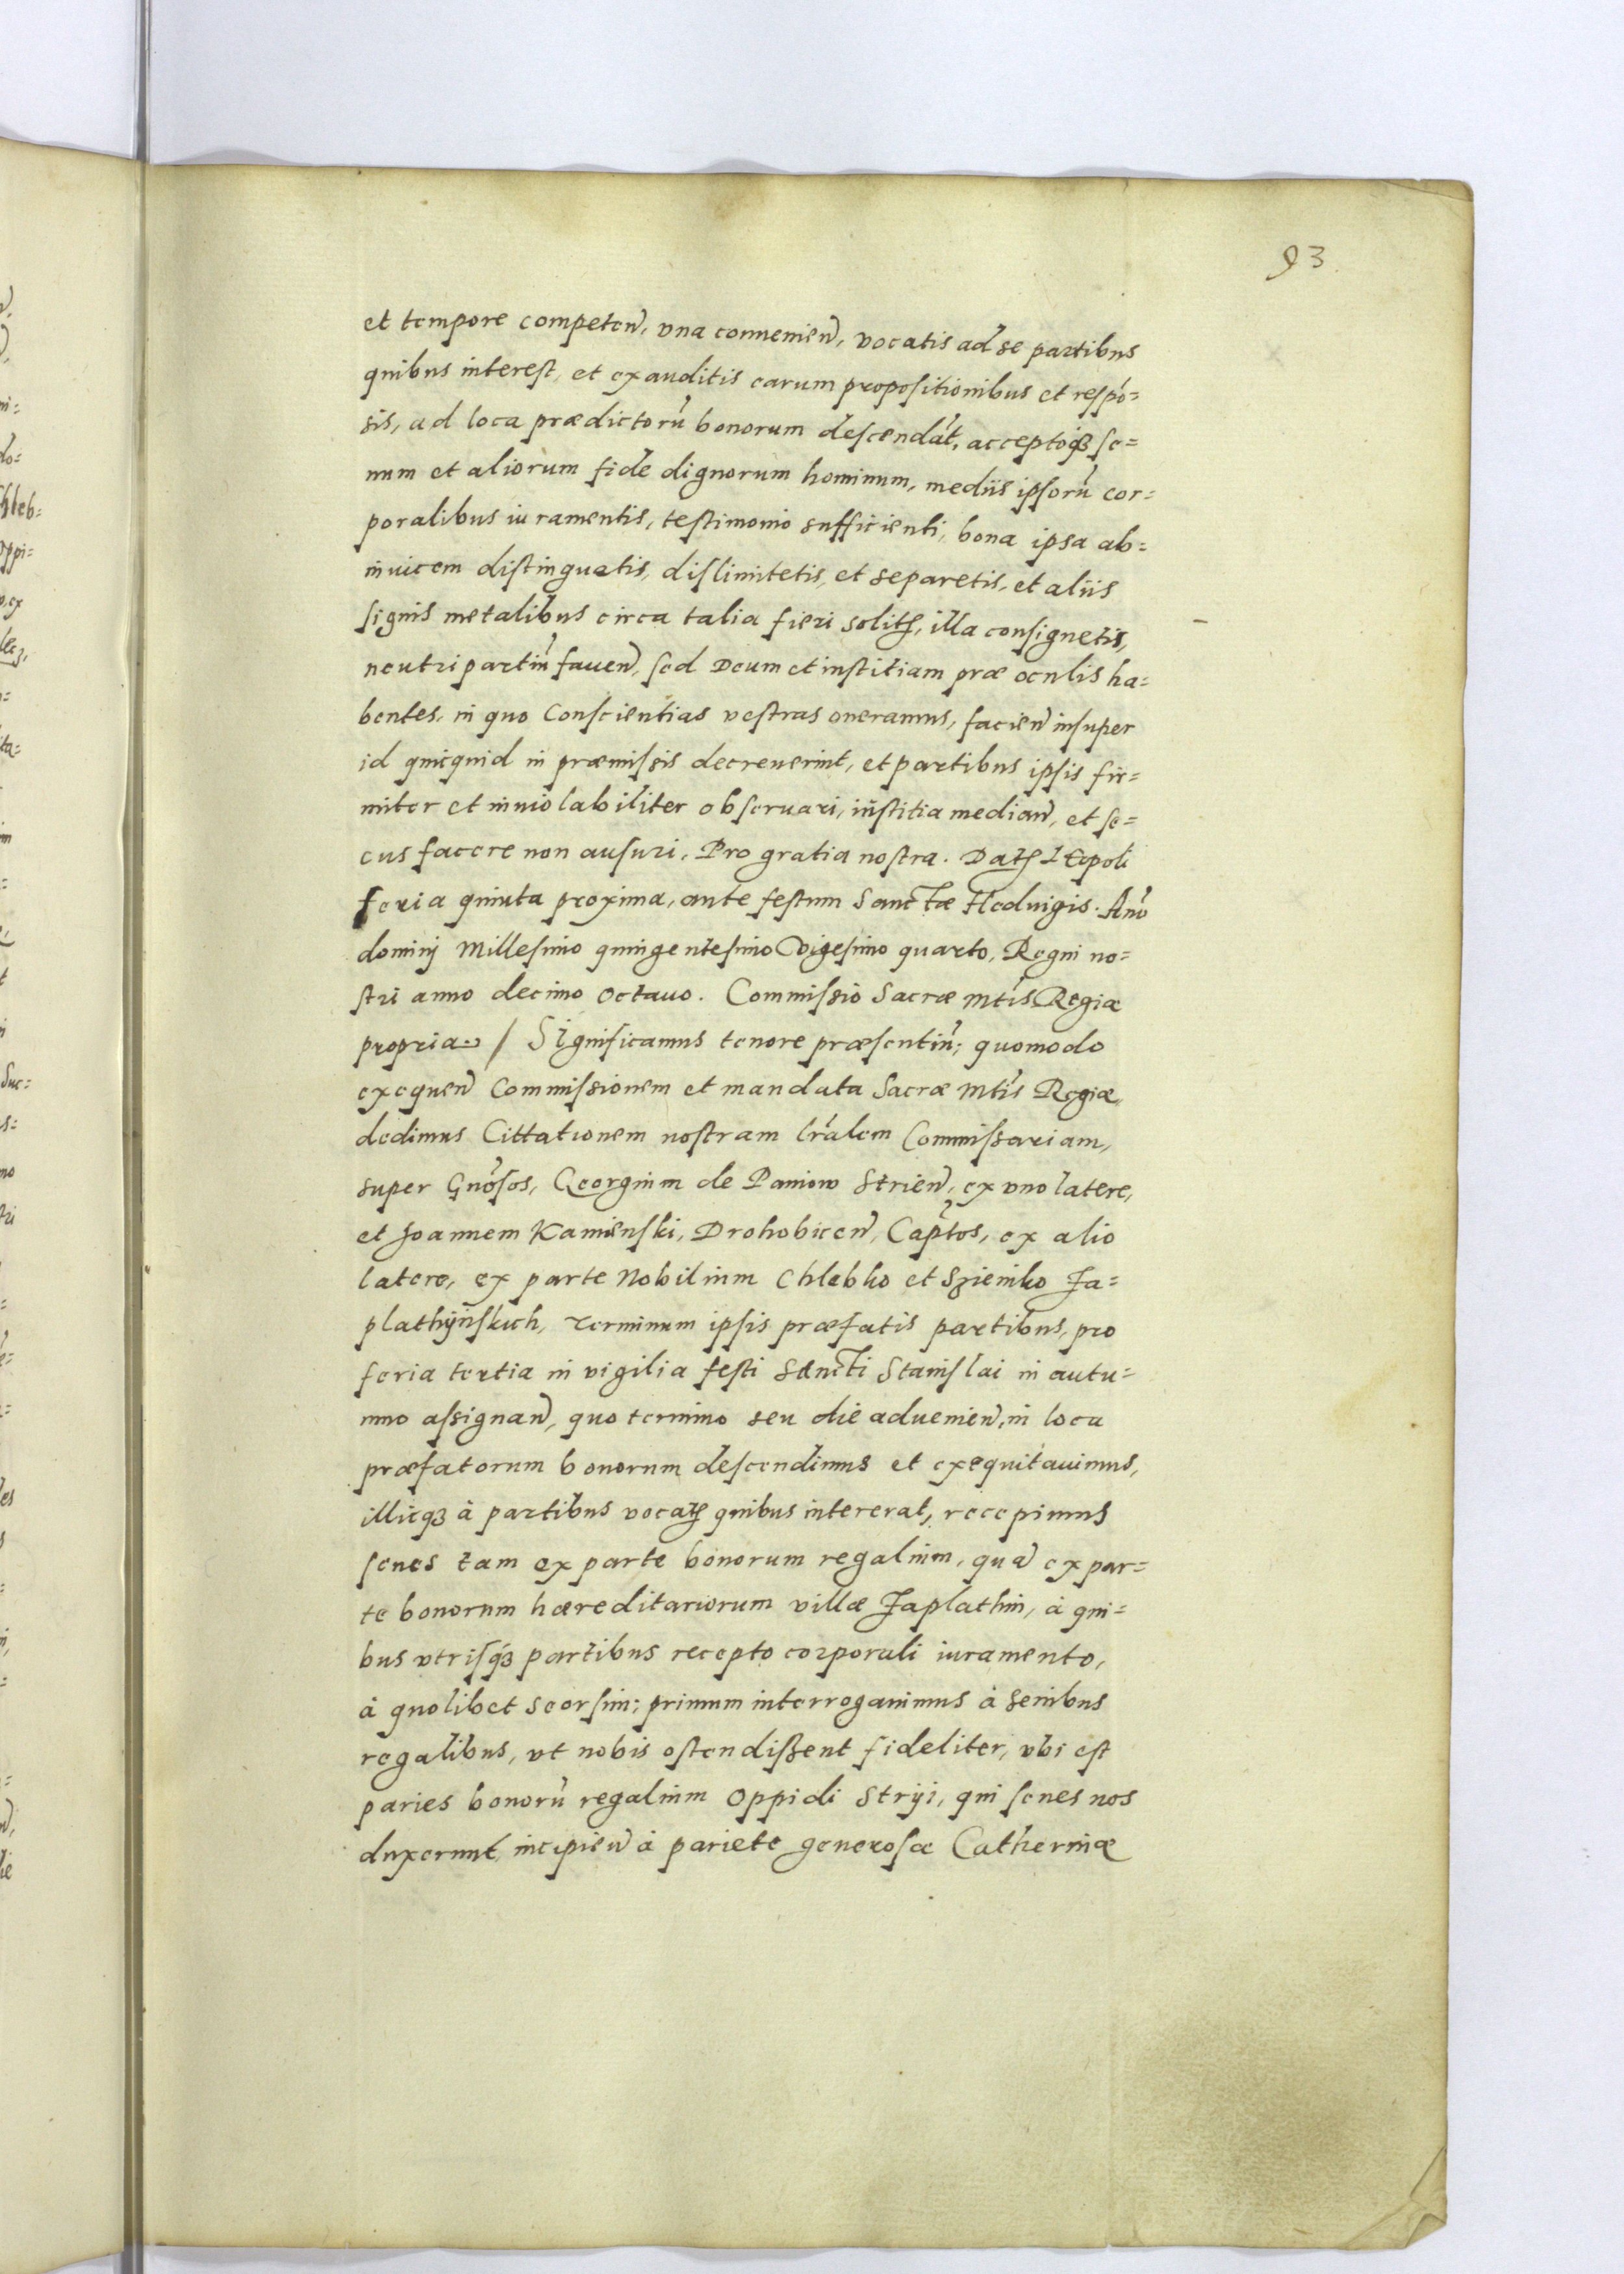 93.
et tempore competeñ, vna conuenieñ, vocatis ad se partibus
quibus interest, et exauditis earum propositionibus et respó=
sis, ad loca prædictorũ bonorum descendãt, acceptoq3 se=
num et aliorum fide dignorum hominum, mediis ipsorũ cor=
poralibus iuramentis, testimonio sufficienti, bona ipsa ab=
inuicem distinguatis, dislimitetis, et separetis, et aliis
signis metalibus circa talia fieri solitʒ, illa consignetis,
neutri partiũ faueñ, sed Deum et iustitiam præ oculis ha=
bentes, in quo Conscientias vestras oneramus, facieñ insuper
id quicquid in præmissis decreuerint, et partibus ipsis fir=
miter et inuiolabiliter obseruari, iustitia mediañ, et se=
cus facere non ausuri, Pro gratia nostra. Datʒ Leopoli
feria quinta proxima, ante festum Sanctæ Heduigis. Año
dominij Millesimo quingentesimo Vigesimo quarto, Regni no=
stri anno decimo octauo. Commissio Sacræ Mtis Regiæ
propria / Significamus tenore præsentiũ; quomodo
exequeñ Commissionem et mandata Sacræ Mtis Regiæ,
dedimus Cittationem nostram lrãlem Commissariam,
super Gñosos, Georgium de Paniow Strieñ, ex vno latere,
et Joannem Kamienski, Drohobiceñ, Captos, ex alio
latere, ex parte Nobilium Chlebko et Szienko Ja=
plathÿnskich, terminum ipsis præfatis partibus, pro
feria tertia in vigilia festi Sancti Stanislai in autu=
mno assignañ, quo termino seu die aduenieñ, in loca
præfatorum bonorum descendimus et exequitauimus,
illicq3 à partibus vocatʒ quibus intererat, recepimus
senes tam ex parte bonorum regalium, quã ex par=
te bonorum hæreditariorum villæ Japlathin, à qui=
bus vtrisq3 partibus recepto corporali iuramento,
à quolibet seorsim; primum interrogauimus à senibus
regalibus, vt nobis ostendissent fideliter, vbi est
paries bonorũ regalium Oppidi Stryi, qui senes nos
duxerunt, incipieñ à pariete generosæ Catherinæ